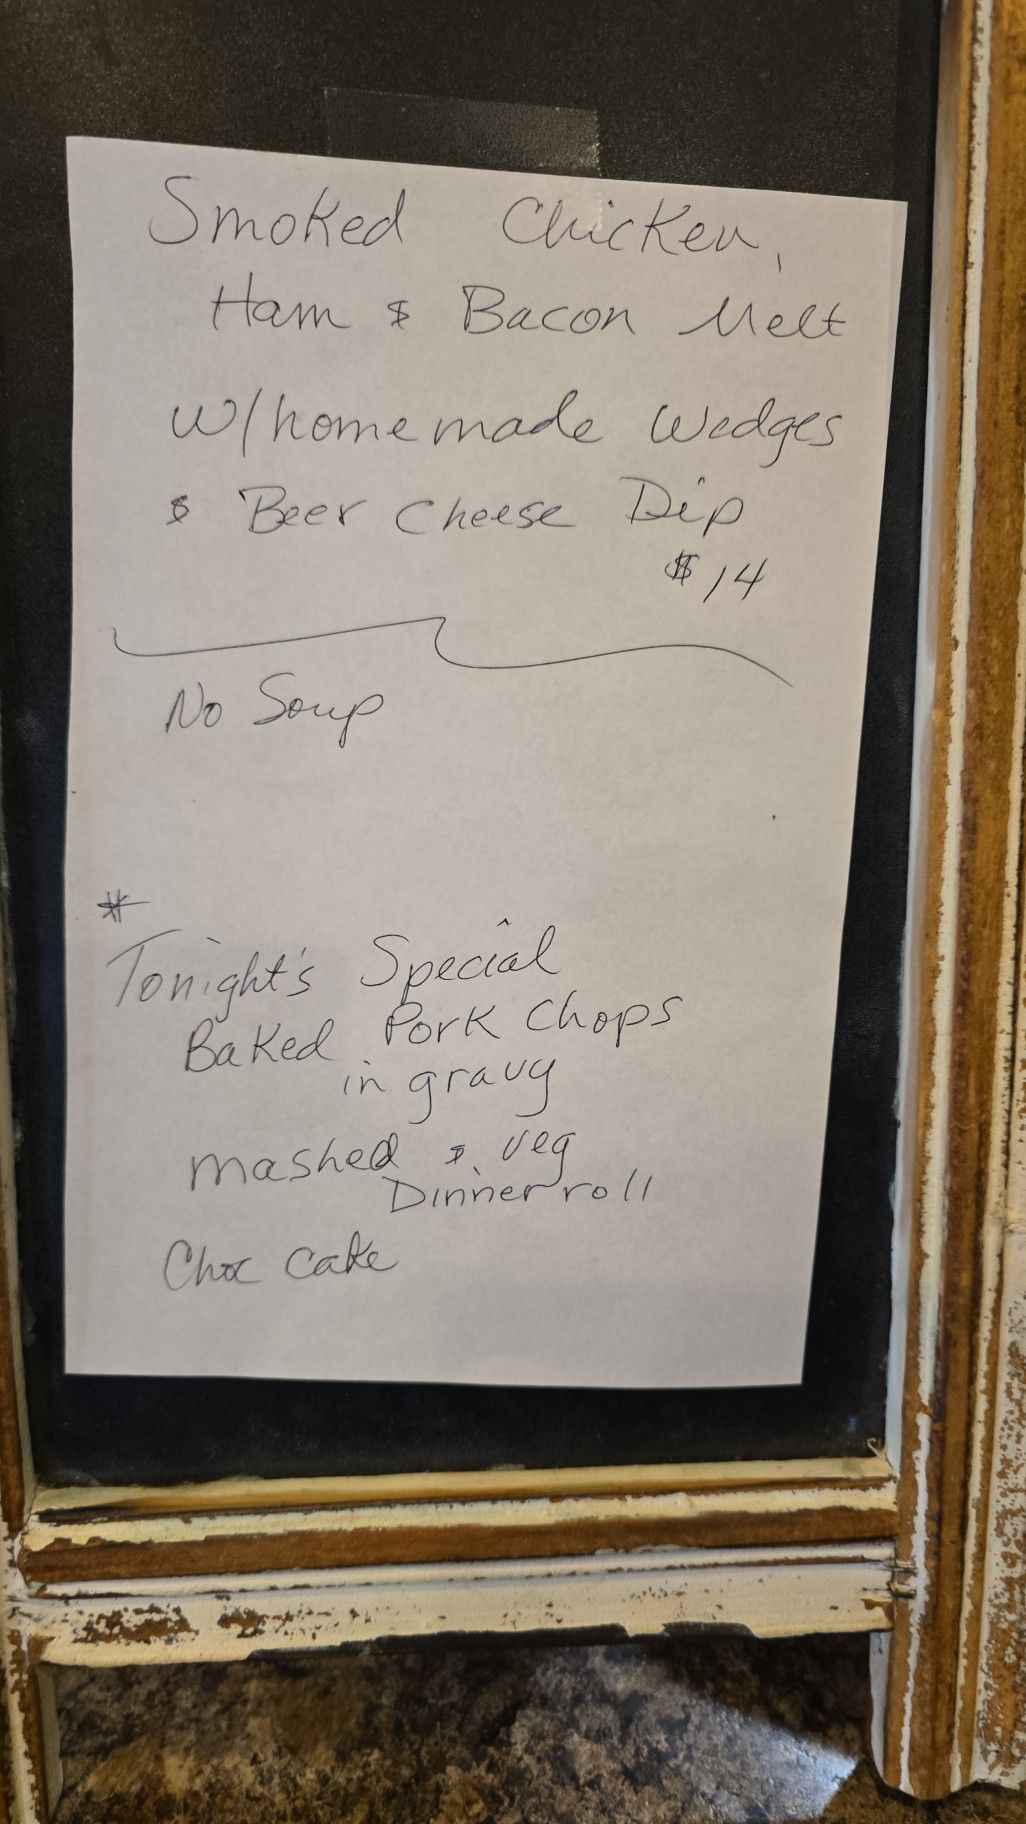 Smoked Chicken,
Ham & Bacon Melt
w/homemade Wedges
& Beer Cheese Dip
$14
No Soup
*
Tonight's Special
Baked Pork Chops
in gravy
mashed & veg
Dinner roll
Choc cake